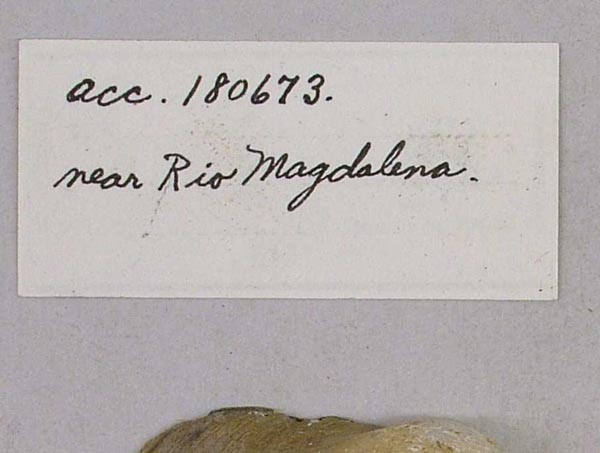 acc. 180673.
near Rio Magdalena.